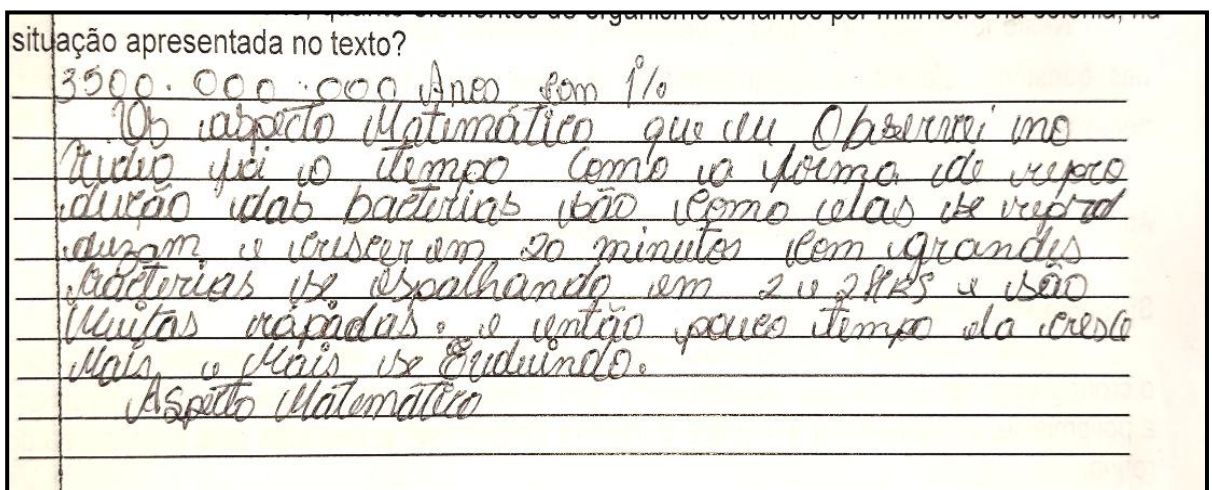 situação apresentada no texto?
3500.000.000 Anos com 1%
Os aspecto Matimático que eu Observei no
foi o tempo como a forma de repro
dução das bactérias são como elas se reprod
duzam e crescer em 20 minutos com grandes
bactérias se espalhando em 2 e 2 HRS e são
Muitas rápidas. e então pouco tempo ela cresce
Mais e Mais se
Aspecto Matemático